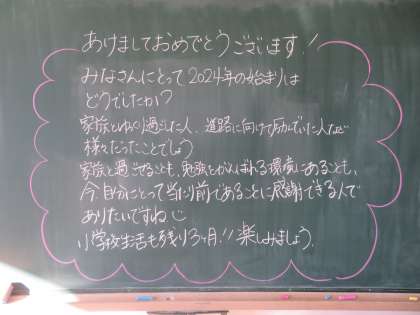 あけましておめでとうございます!
みなさんにとって2024年の始まりは
どうでしたか?
家族とゆっくり過ごした人、進路に向けて励んでいた人など
様々だったことでしょう
家族と過ごせることも、勉強をがんばれる環境にあることも、
今自分にとって当たり前であることに感謝できる人で
ありたいですね
小学校生活も残り3ヶ月!!楽しみましょう。